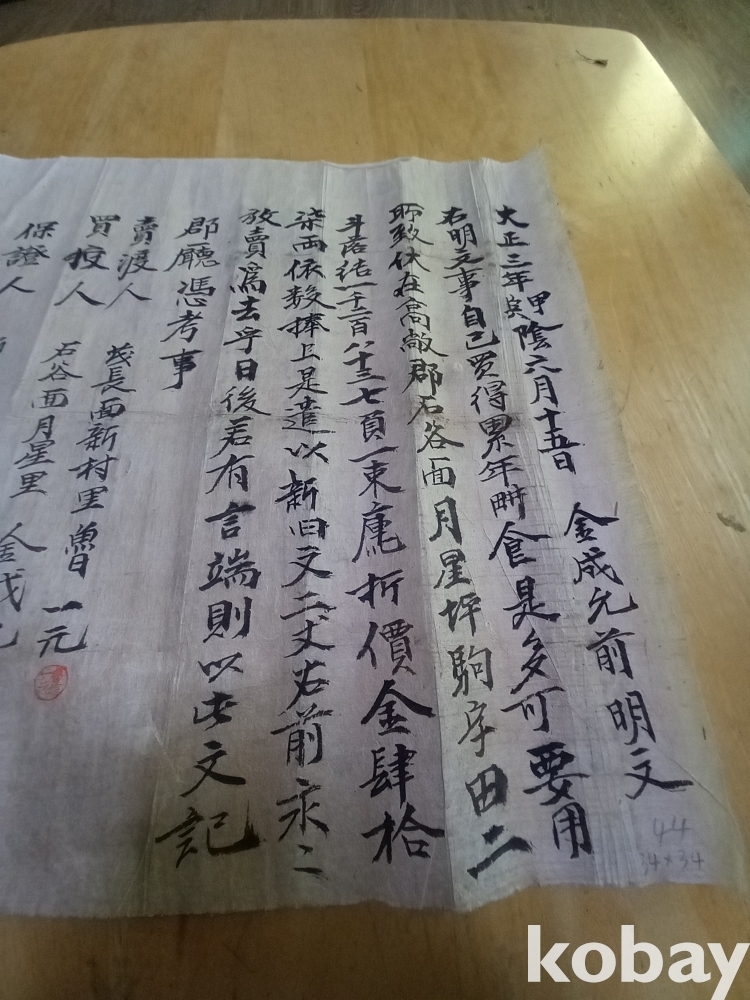 大正三年甲寅陰六月十五日 金成允前明文
右明文事自己買得累年畊食是多可要用
所致伏在高敞郡石谷面月星坪駒字田二
斗落結一千二百八十三七頁一束庫折價金肆拾
柒両依数捧上是遣以新旧文二丈右前永々
放賣爲去乎日後若有言端則以此文記
郡廳憑考事
賣渡人 茂長面新村里 魯一元
買授人 石谷面月星里 金成允
保證人
44
34×34
kobay